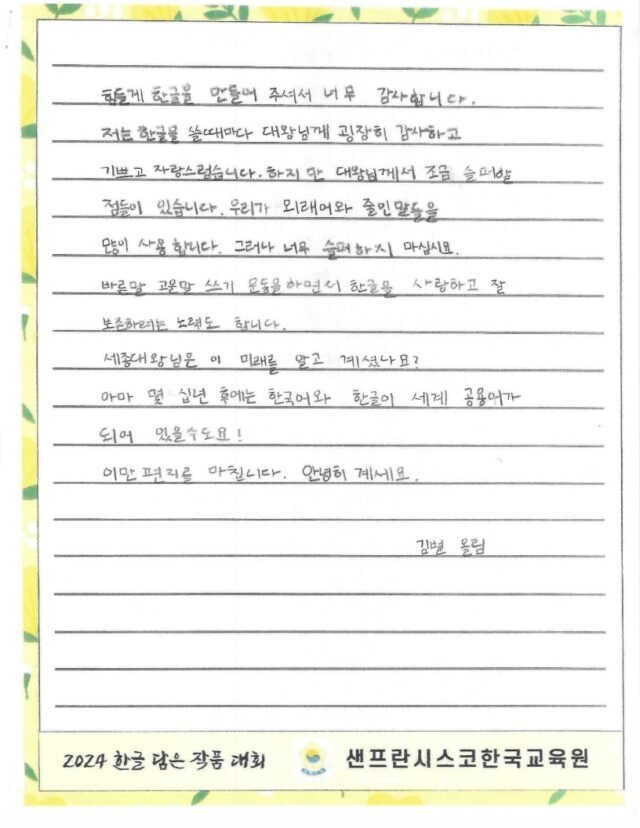 힘들게 한글을 만들어 주셔서 너무 감사합니다.
저는 한글을 쓸때마다 대왕님께 굉장히 감사하고
기쁘고 자랑스럽습니다. 하지만 대왕님께서 조금 슬퍼할
점들이 있습니다. 우리가 외래어와 줄인말들을
많이 사용합니다. 그러나 너무 슬퍼하지 마십시요.
바른말 고운말 쓰기 운동을하면서 한글을 사랑하고 잘
보존하려는 노력도 합니다.
세종대왕님은 이 미래를 알고 계셨나요?
아마 몇 십년 후에는 한국어와 한글이 세계 공용어가
되어 있을수도요!
이만 편지를 마칩니다. 안녕히 계세요.
김별 올림
2024 한글 담은 작품 대회 샌프란시스코한국교육원